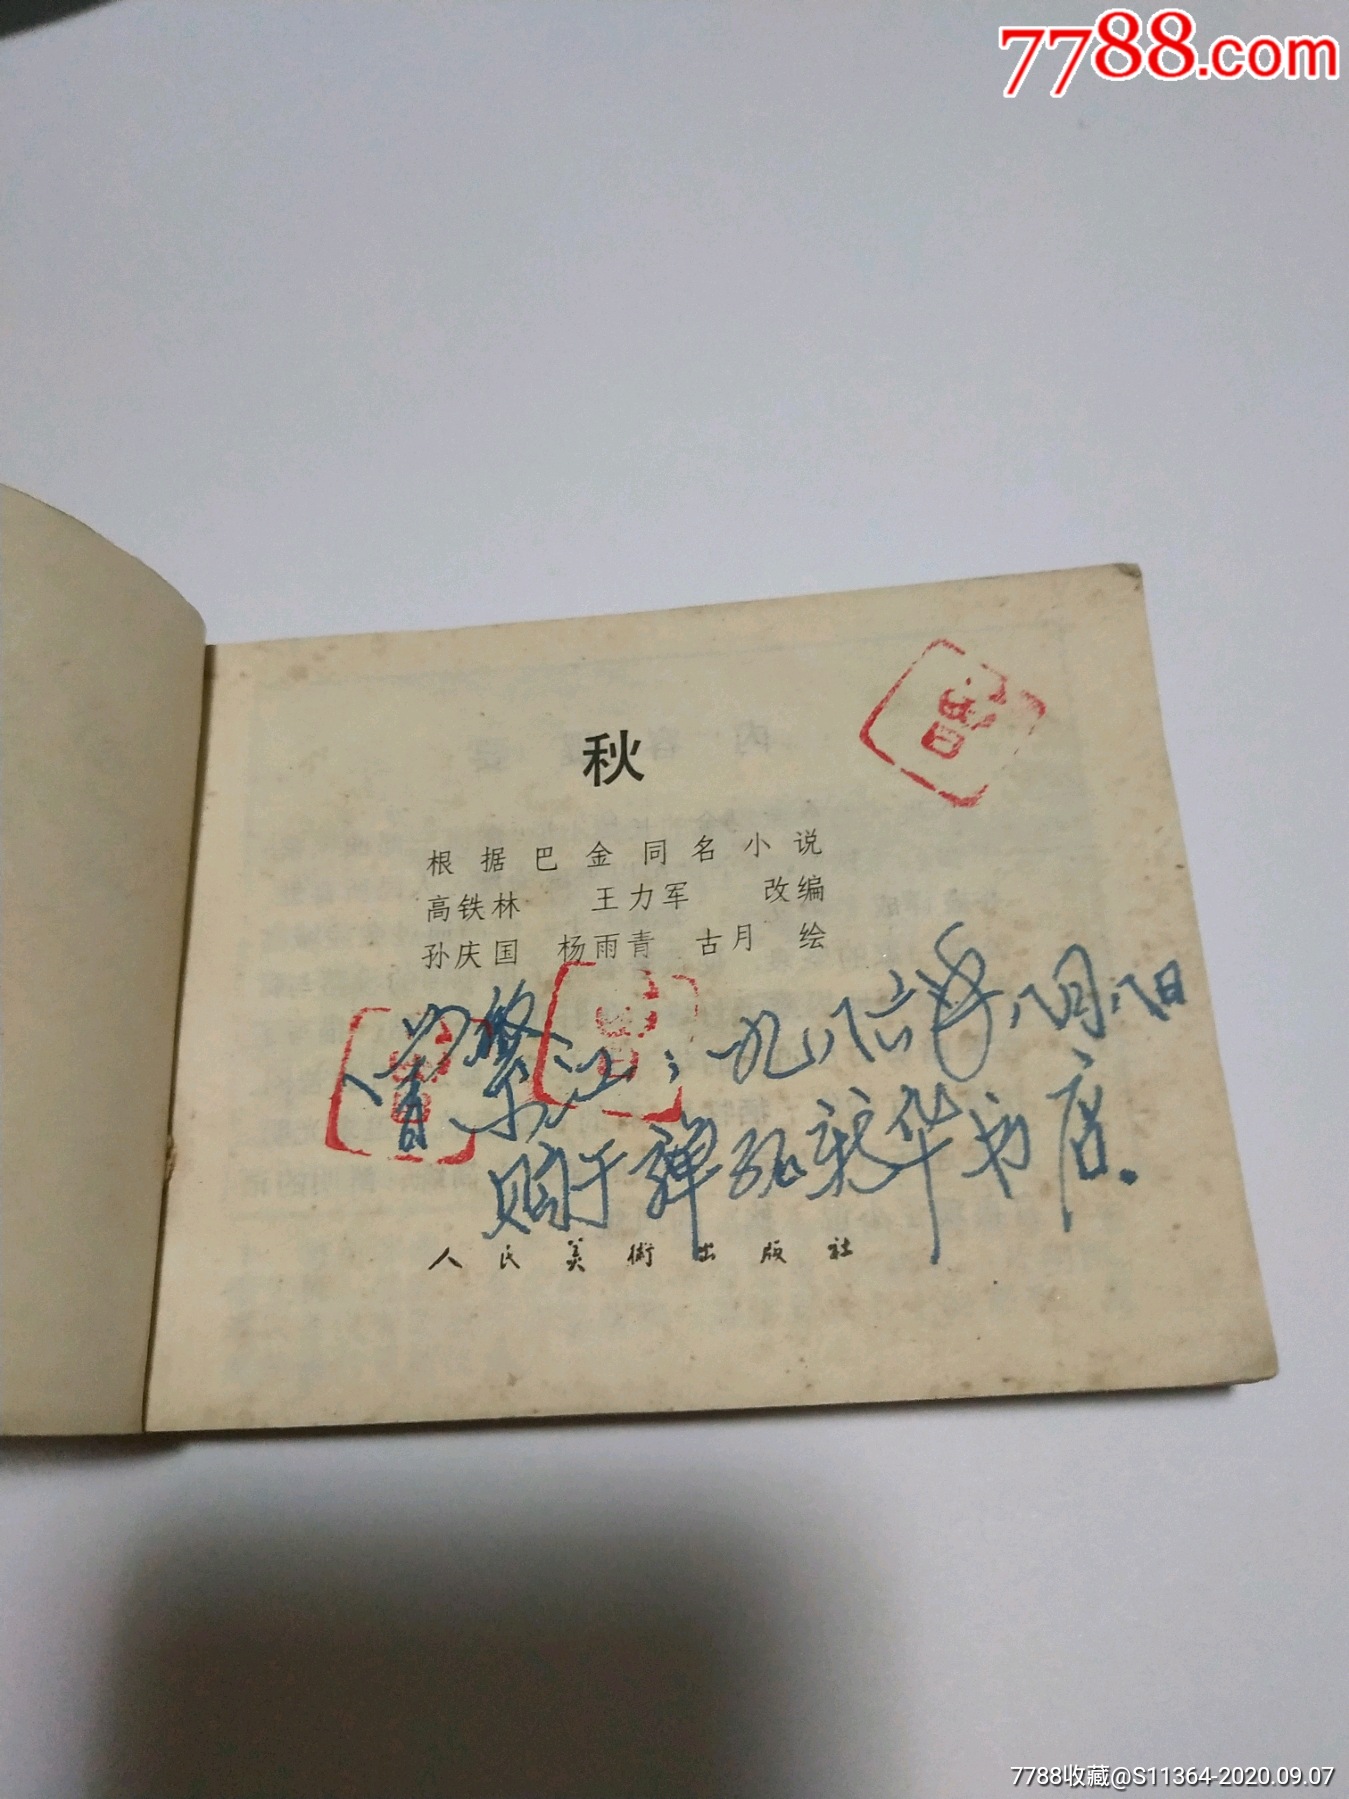 7788.com
秋
根据巴金同名小说
高铁林 王力军 改编
孙庆国 杨雨青 古月 绘
曾
曾繁江:一九八六年八月八日
购于弹子石新华书店.
人民美術出版社
7788收藏@S11364-2020.09.07